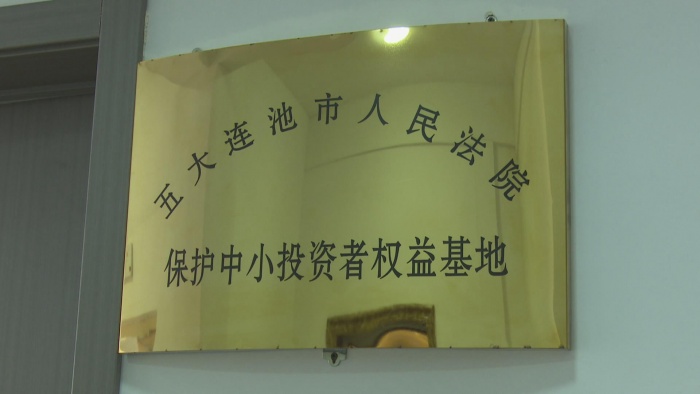 五大连池市人民法院
保护中小投资者权益基地